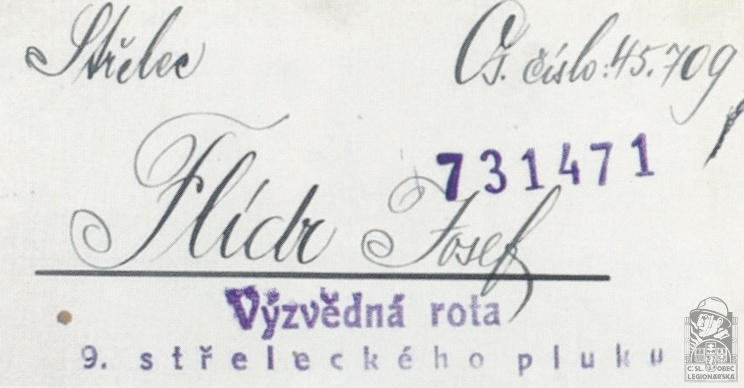 Střelec Os. číslo: 45.709
731471
Flídr Josef
Výzvědná rota
9. střeleckého pluku
ČSL. OBEC
LEGIONÁŘSKÁ